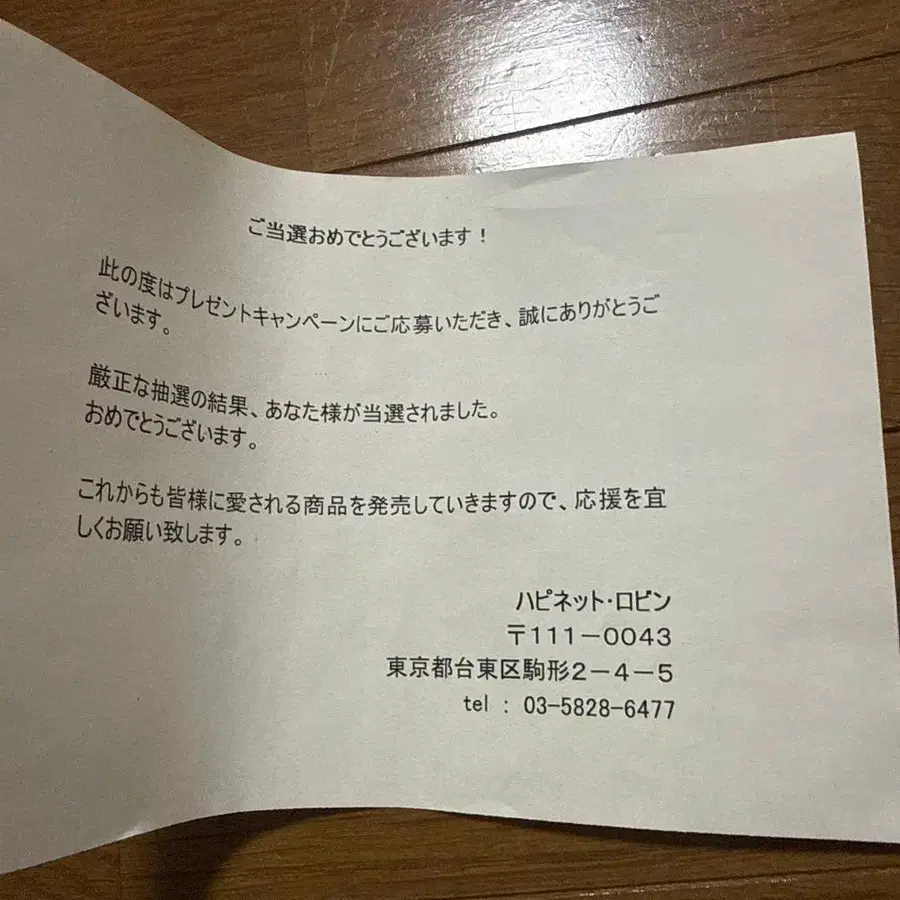 ご当選おめでとうございます！
此の度はプレゼントキャンペーンにご応募いただき、誠にありがとうご
ざいます。
厳正な抽選の結果、あなた様が当選されました。
おめでとうございます。
これからも皆様に愛される商品を発売していきますので、応援を宜
しくお願い致します。
ハピネット・ロビン
〒111－0043
東京都台東区駒形2－4－5
tel : 03-5828-6477